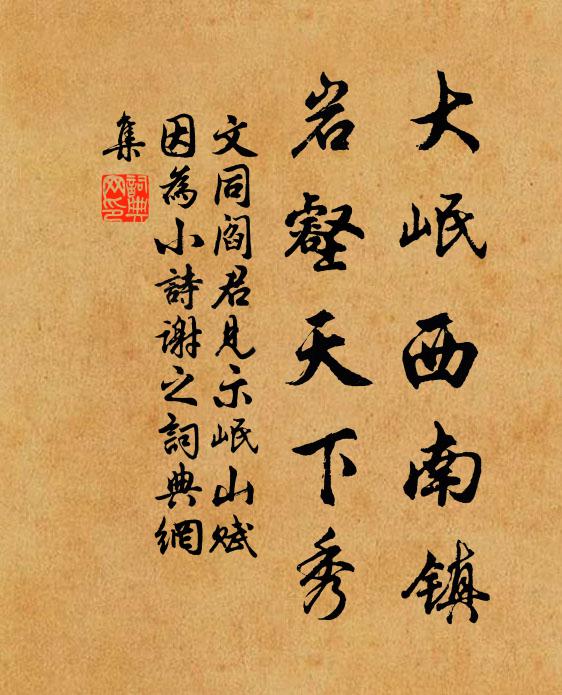 大岷西南镇
岩壑天下秀
文同阎君見示岷山赋
因為小詩谢之詞典網
集
詞典
网印